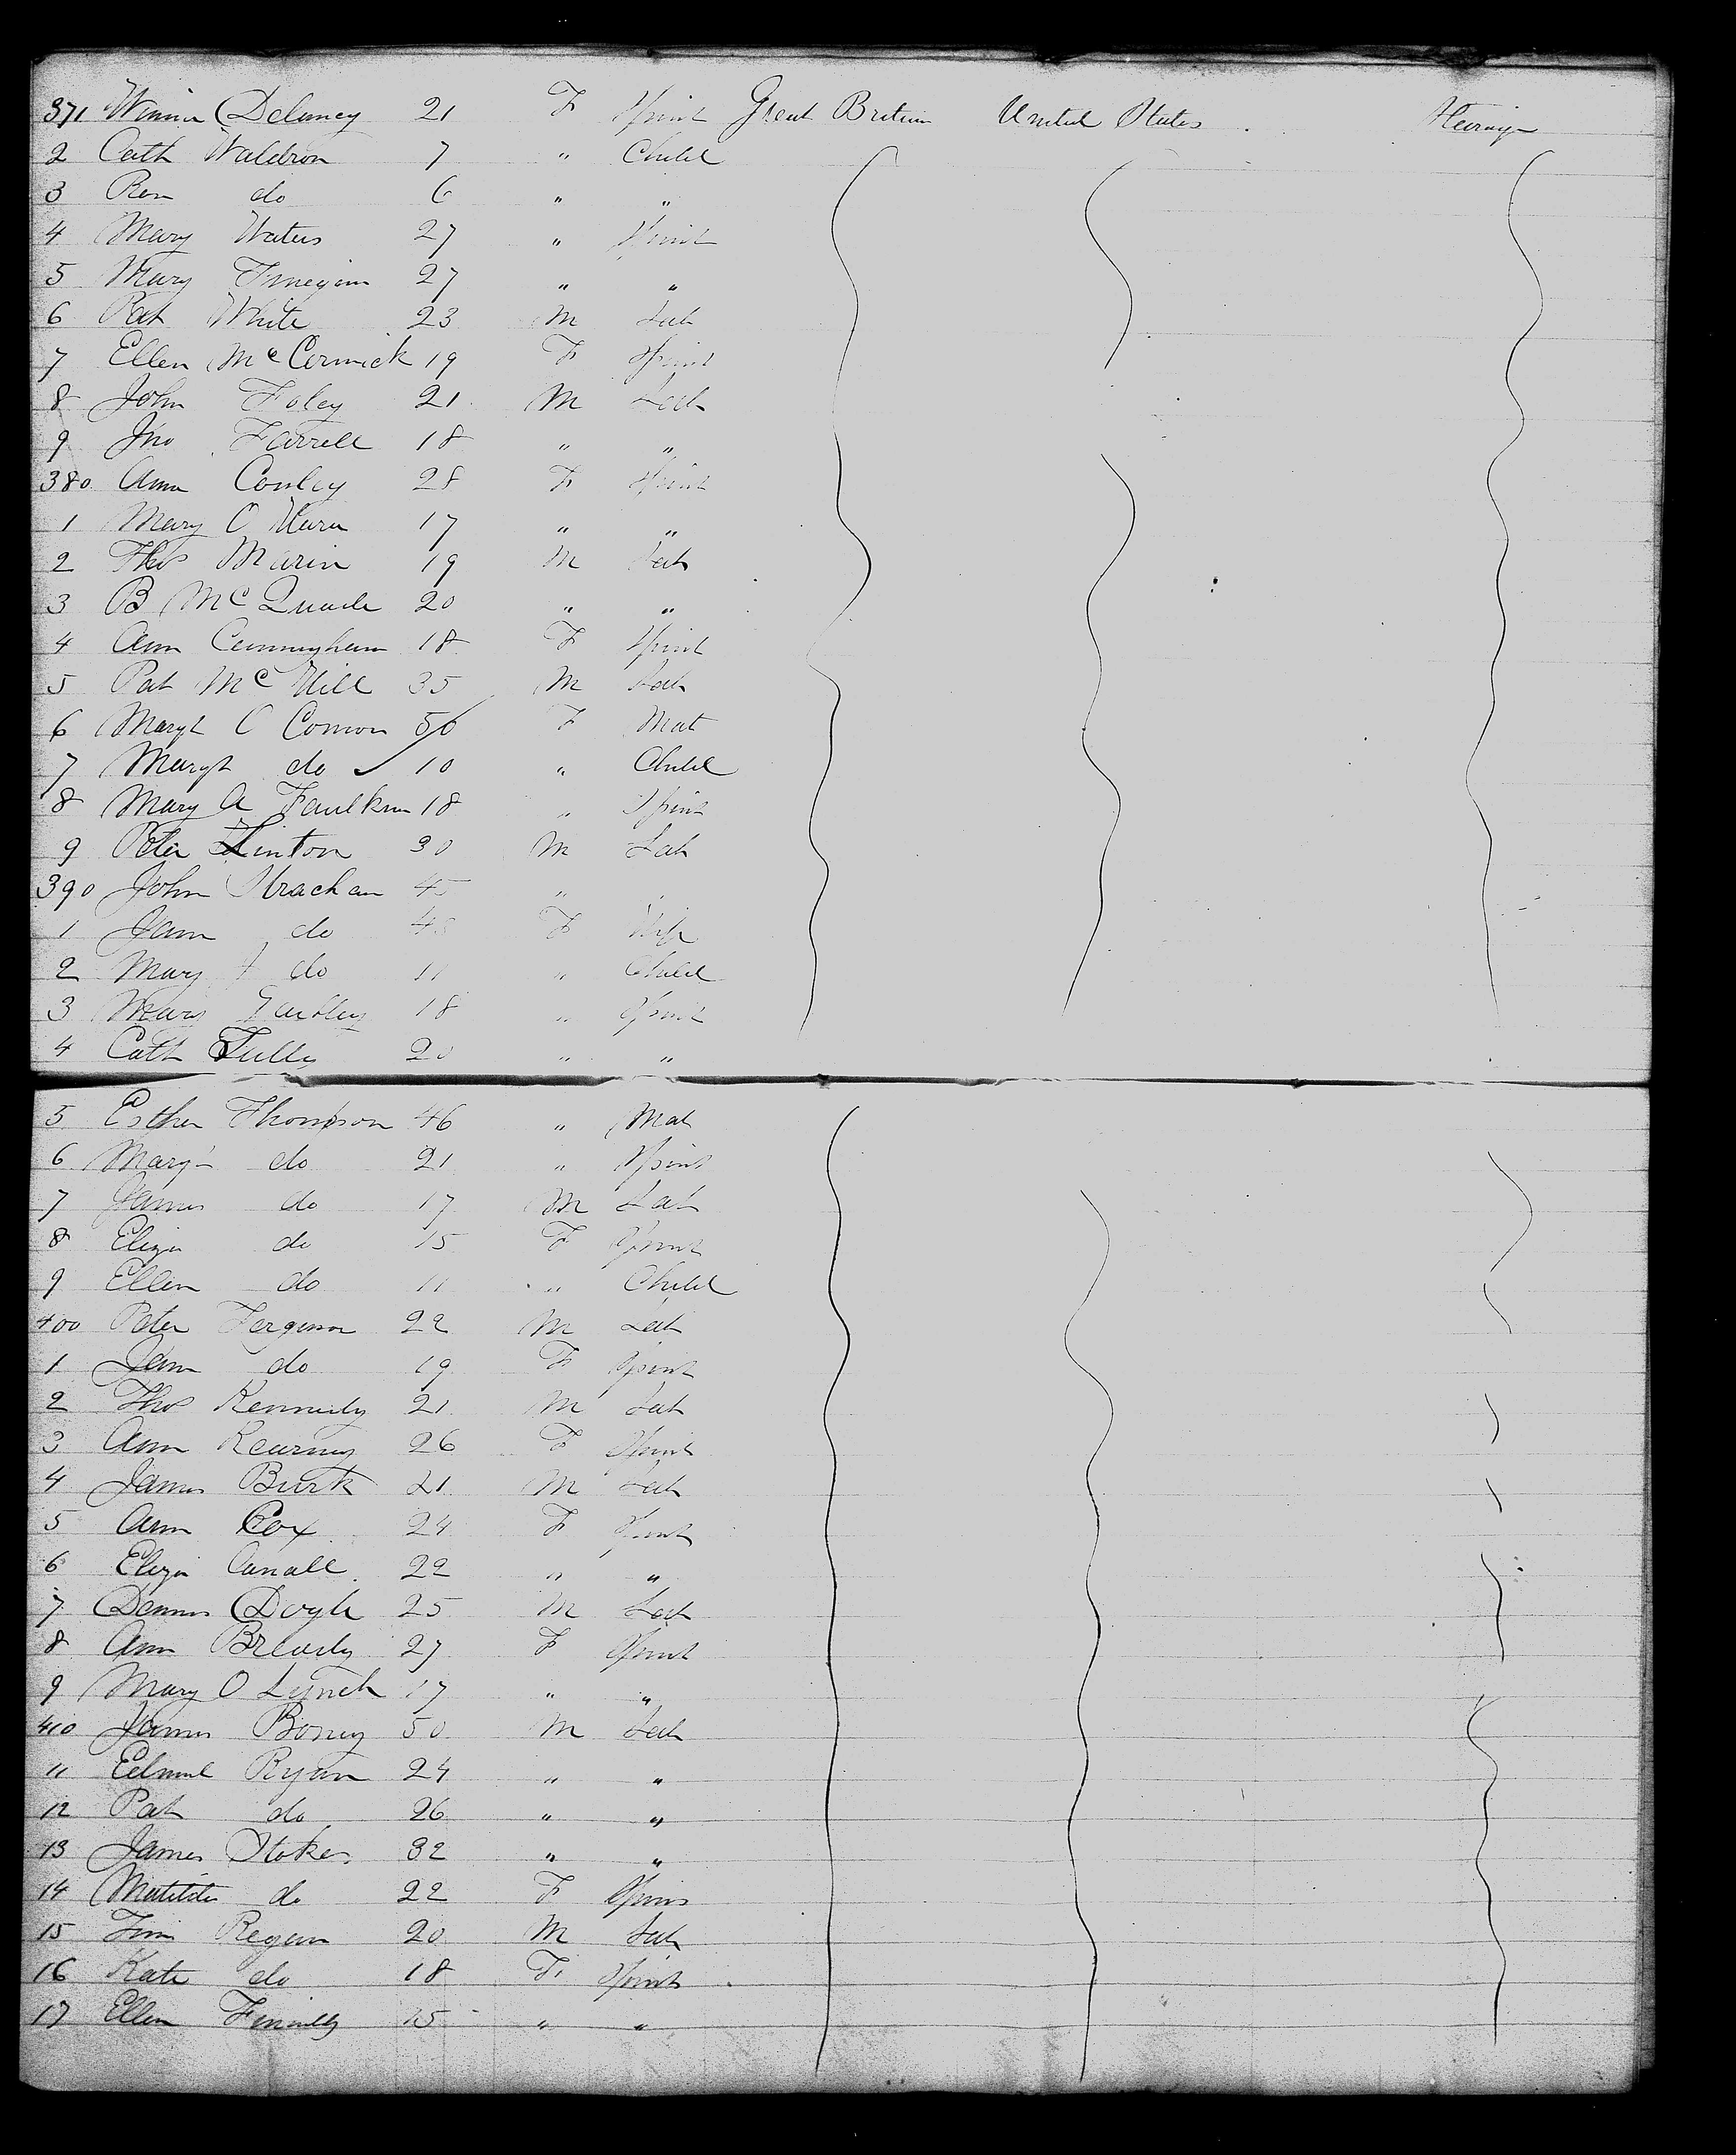 371 Winnie Delaney 21 F Spinst Great Britain United States Steerage
2 Cath Waldron 7 " Child
3 Rose do 6 " "
4 Mary Waters 27 " Spinst
5 Mary Finegan 27 " "
6 Pat White 23 M Lab
7 Ellen McCormick 19 F Spinst
8 John Foley 21 M Lab
9 Jno Farrell 18 " "
380 Ann Conley 28 F Spinst
1 Mary O Hara 17 " "
2 Thos Marin 19 M Lab
3 B McQuade 20 " "
4 Ann Cunningham 18 F Spinst
5 Pat McNill 35 M Lab
6 Margt O Connor 50 F Mat
7 Margt do 10 " Child
8 Mary A Faulkner 18 " Spinst
9 Peter Linton 30 M Lab
390 John Strachan 45 " "
1 Jane do 48 F Wife
2 Mary J do 11 " Child
3 Mary 18 " Spinst
4 Cath Tully 20 " "
5 Esther Thompson 46 " Mat
6 Margt do 21 " Spinst
7 James do 17 M Lab
8 Eliza do 15 F Spinst
9 Ellen do 11 " Child
400 Peter Ferguson 22 M Lab
1 Jane do 19 F Spinst
2 Thos Kennedy 21 M Lab
3 Ann Kearney 26 F Spinst
4 James Burk 21 M Lab
5 Ann Cox 24 F Spinst
6 Eliza 22 " "
7 Dennis Doyle 25 M Lab
8 Ann Bready 27 F Spinst
9 Mary O Lynch 17 " "
410 James Boney 50 M Lab
11 Edmund Ryan 24 " "
12 Pat do 26 " "
13 James Stokes 32 " "
14 Matilda do 22 F Spins
15 Tim Regan 20 M Lab
16 Kate do 18 F Spinst
17 Ellen 15 " "